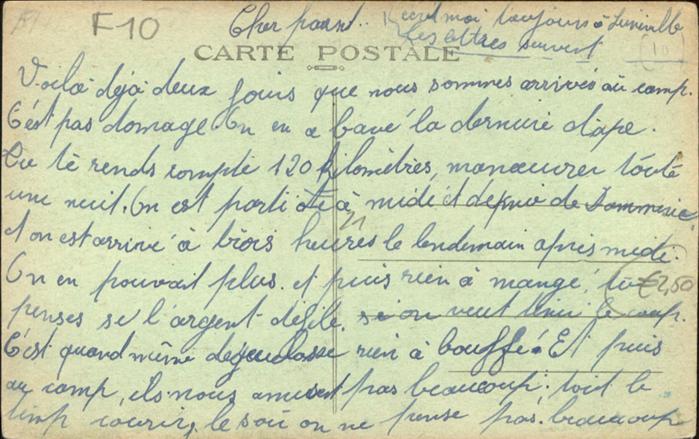 F10
Cher parent.. Ecrit moi toujours à Luneville
les lettres suivent
10
CARTE POSTALE
Voilà déjà deux jouis que nous sommes arrivés au camp.
C'est pas domage. On en a bavé la derniere étape.
Tu te rends compte 120 kilomètres, manœuvrer toute
une nuit. On est parti à midi et depuie de
et on est arrivé à trois heures le lendemain après midi.
On en pouvait plus. et puis rien à mangé, tu
€2,50
penses se l'argent défile. si on veut tenir le coup.
C'est quand même degeulasse rien à bouffé! Et puis
au camp, ils nous amusent pas beaucoup: tout le
temp courir, le soir on ne pense pas. beaucoup